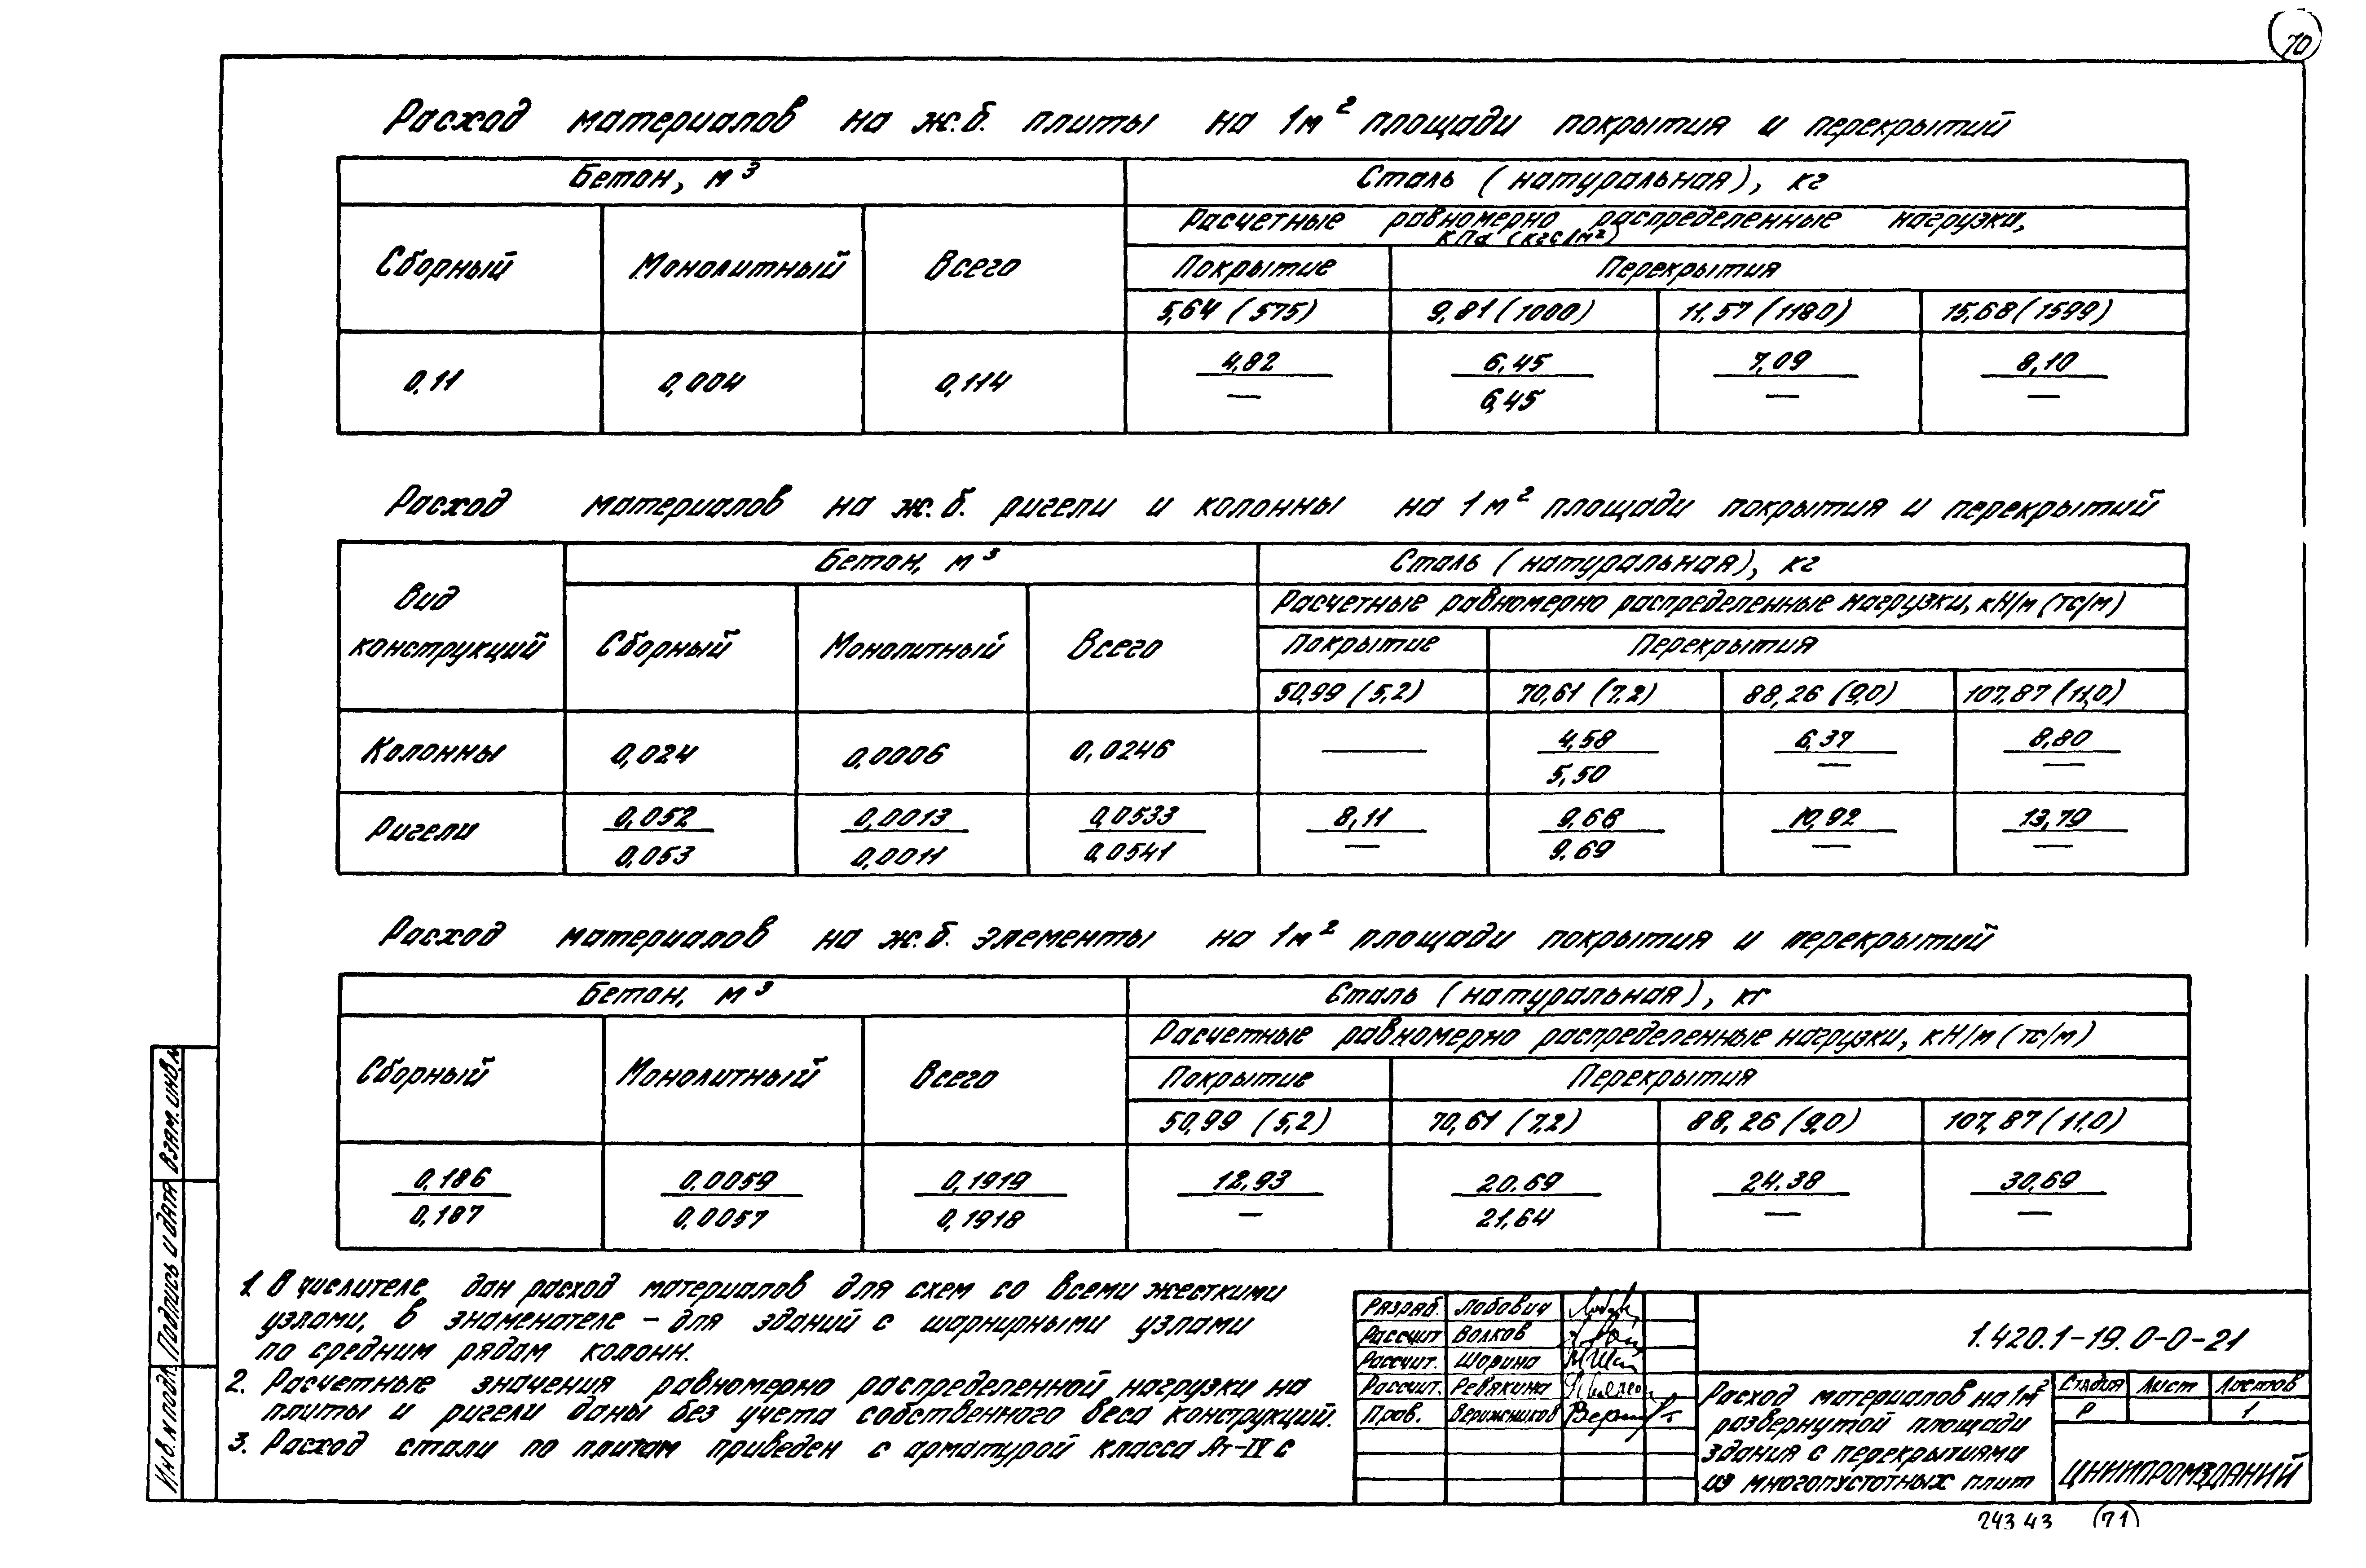 70
Расход материалов на ж.б. плиты на 1м² площади покрытия и перекрытий
Бетон, м³
Сталь (натуральная), кг
Расчетные равномерно распределенные нагрузки,
кПа (кгс/м²)
Сборный Монолитный Всего
Покрытие Перекрытия
5,64 (575) 9,81 (1000) 11,57 (1180) 15,68 (1599)
4,82 6,45 7,09 8,10
0,11 0,004 0,114
— 6,45 — —
Расход материалов на ж.б. ригели и колонны на 1м² площади покрытия и перекрытий
Вид
конструкций
Бетон, м³
Сталь (натуральная), кг
Расчетные равномерно распределенные нагрузки, кН/м (тс/м)
Сборный Монолитный Всего
Покрытие Перекрытия
50,99 (5,2) 70,61 (7,2) 88,26 (9,0) 107,87 (11,0)
Колонны 0,024 0,0006 0,0246 — 4,58 6,37 8,80
5,50 — —
Ригели 0,052 0,0013 0,0533 8,11 9,68 10,92 13,79
0,053 0,0011 0,0541 — 9.69 — —
Расход материалов на ж.б. элементы на 1м² площади покрытия и перекрытий
Бетон, м³
Сталь (натуральная), кг
Расчетные равномерно распределенные нагрузки, кН/м (тс/м)
Сборный Монолитный Всего
Покрытие Перекрытия
50,99 (5,2) 70,61 (7,2) 88,26 (9,0) 107,87 (11.0)
0,186 0,0059 0,1919 12,93 20.69 24.38 30,69
0,187 0,0057 0,1918 — 21,64 — —
1. В числителе дан расход материалов для схем со всеми жесткими
узлами, в знаменателе – для зданий с шарнирными узлами
по средним рядам колонн.
2. Расчетные значения равномерно распределенной нагрузки на
плиты и ригели даны без учета собственного веса конструкций.
3. Расход стали по плитам приведен с арматурой класса Ат-IV с
Взам. инв. №
Подпись и дата
Инв. № подл.
Разраб. Лабович
Рассчит Волков
Рассчит. Шорина
Рассчит. Ревякина
Пров. Верижников
1.420.1-19.0-0-21
Расход материалов на 1м²
развернутой площади
здания с перекрытиями
из многопустотных плит
Стадия Лист Листов
Р 1
ЦНИИПРОМЗДАНИЙ
24343 71